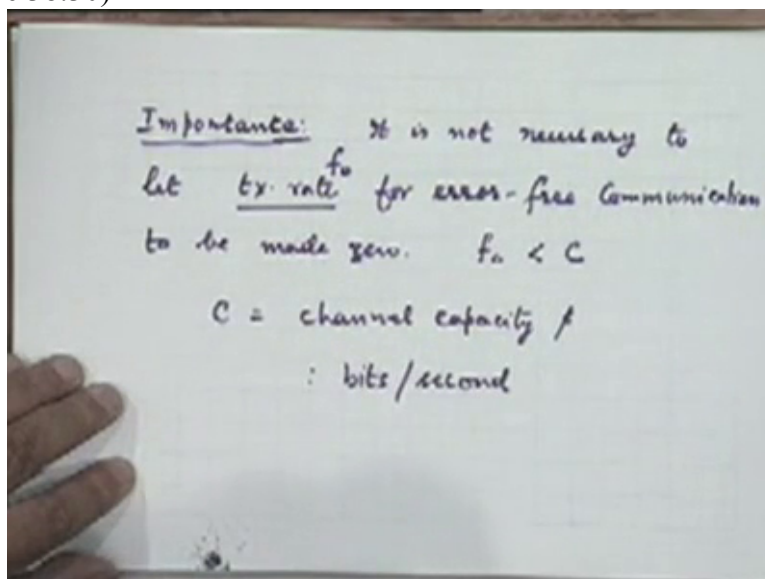 Importance: It is not necessary to
let tx. rate f₀ for error-free Communication
to be made zero. f₀ < C
C = channel capacity
: bits/second